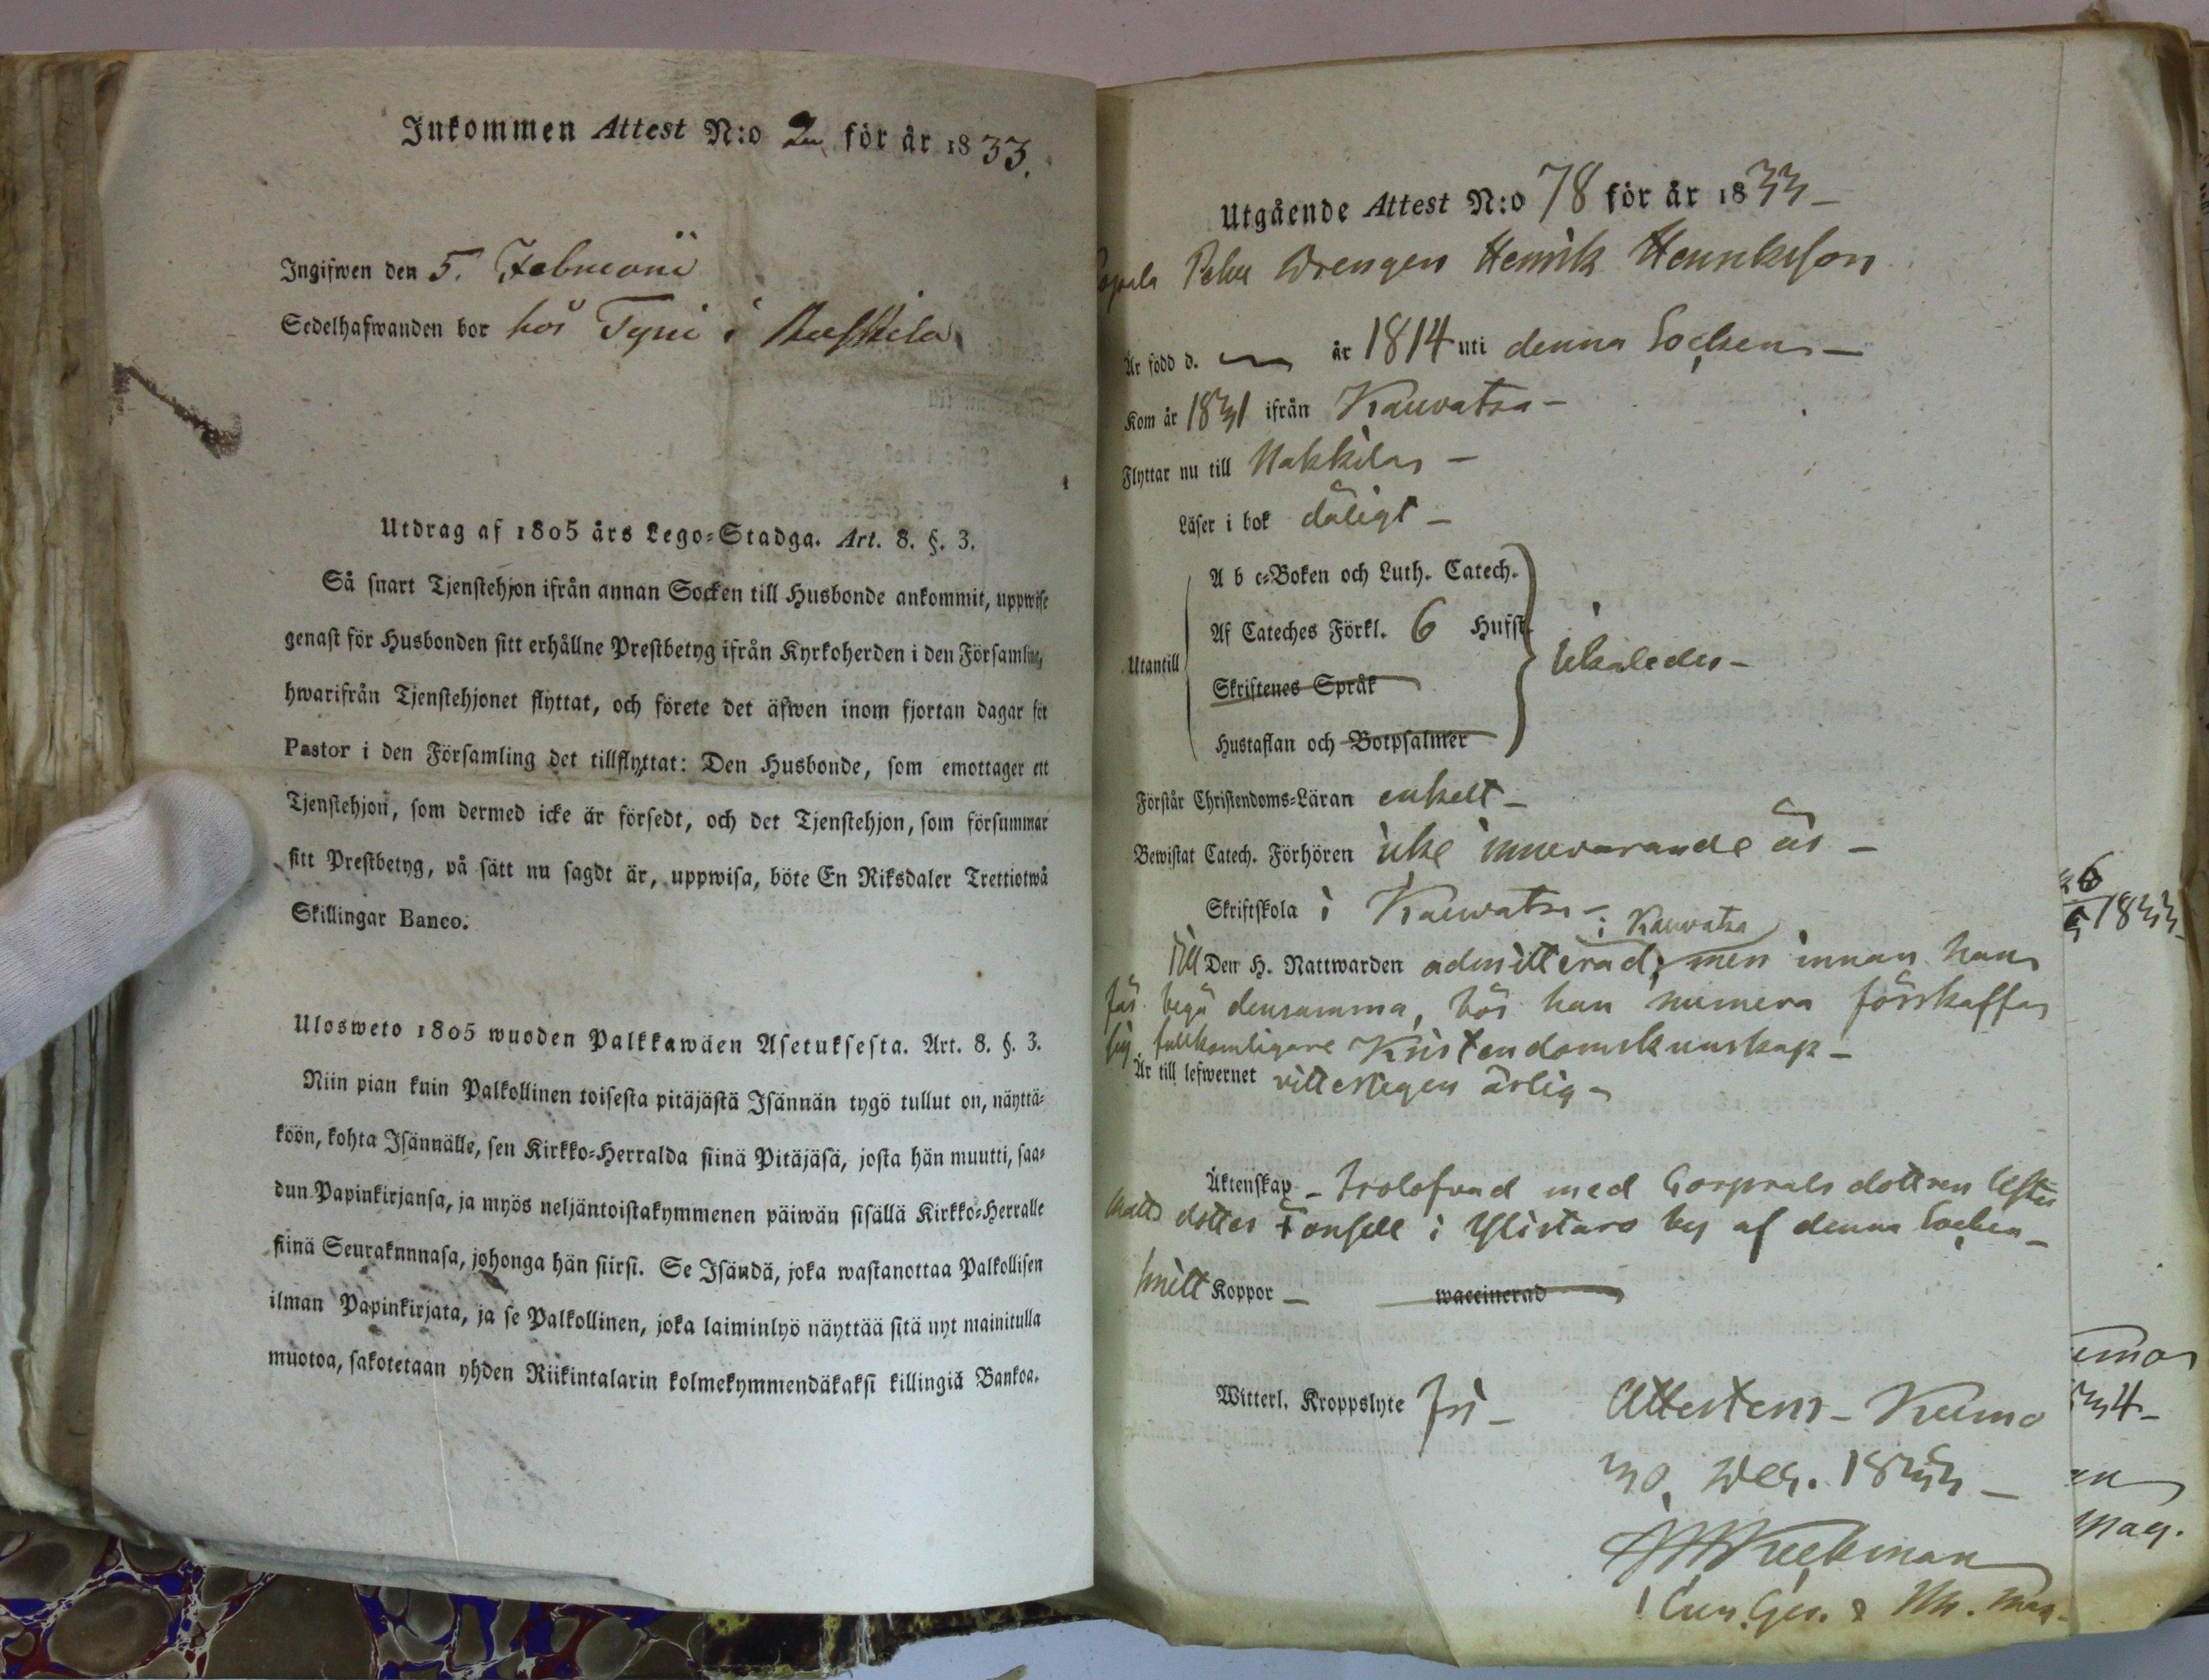 Inkommen Attest N:o 2 för år 1833.
Ingifwen den 5. Februarii
Sedelhafwanden bor hos Tyni i
Utdrag af 1805 års Lego-Stadga. Art. 8. §. 3.
Så snart Tjenstehjon ifrån annan Socken till Husbonde ankommit, uppwise
genast för Husbonden sitt erhållne Prestbetyg ifrån Kyrkoherden i den Församling,
hwarifrån Tjenstehjonet flyttat, och förete det äfwen inom fjortan dagar för
Pastor i den Församling det tillflyttat: Den Husbonde, som emottager ett
Tjenstehjon, som dermed icke är försedt, och det Tjenstehjon, som försummar
sitt Prestbetyg, på sätt nu sagdt är, uppwisa, böte En Riksdaler Trettiotwå
Skillingar Banco.
Ulosweto 1805 wuoden Palkkawäen Asetuksesta. Art. 8. §. 3.
Niin pian kuin Palkollinen toisesta pitäjästä Isännän tygö tullut on, näyttä-
köön, kohta Isännälle, sen Kirkko-Herralda siinä Pitäjäsä, josta hän muutti, saa-
dun Papinkirjansa, ja myös neljäntoistakymmenen päiwän sisällä Kirkko-Herralle
siinä Seuraknnnasa, johonga hän siirsi. Se Isändä, joka wastanottaa Palkollisen
ilman Papinkirjata, ja se Palkollinen, joka laiminlyö näyttää sitä nyt mainitulla
muotoa, sakotetaan yhden Riikintalarin kolmekymmendäkaksi killingiä Bankoa.
Utgående Attest N:o 78 för år 1833 -
Drengen Henrik Henriksson
Är född d. — år 1814 uti denna Socken -
Kom år 1831 ifrån Kauvatsa -
Flyttar nu till Nakkila -
Läser i bok dåligt -
A b c-Boken och Luth. Catech.
Af Cateches Förkl. 6 Hufst.
Utantill likaledes -
Skriftenes Språk
Hustaflan och Botpsalmer
Förstår Christendoms-Läran enkelt -
Bewistat Catech. Förhören icke innevarande år -
Skriftskola i Kauvatsa -
i Kauvatsa
Till Den H. Nattwarden admitterad, men innan han
får begå densamma, bör han numera förskaffa
sig fullkomligare Kristendomskunskap -
Är till lefwernet vitterligen ärlig -
Äktenskap - trolofvad med Corprals dottren
Matts dotter i Ylistaro by af denna Socken -
haft Koppor - waccinerad
Witterl. Kroppslyte Fri -
Attesteras - Kumo
30. Dec. 1833 -
1833
34 -
Mag.